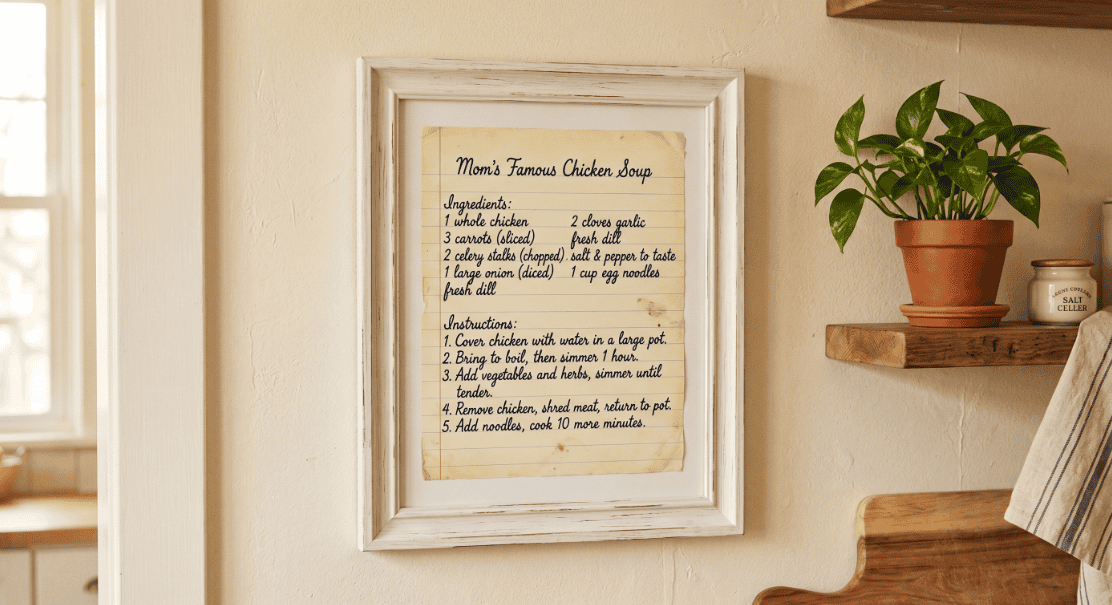 Mom's Famous Chicken Soup
Ingredients:
1 whole chicken
3 carrots (sliced)
2 celery stalks (chopped)
1 large onion (diced)
fresh dill
2 cloves garlic
fresh dill
salt & pepper to taste
1 cup egg noodles
Instructions:
1. Cover chicken with water in a large pot.
2. Bring to boil, then simmer 1 hour.
3. Add vegetables and herbs, simmer until
tender.
4. Remove chicken, shred meat, return to pot.
5. Add noodles, cook 10 more minutes.
SALT
CELLER